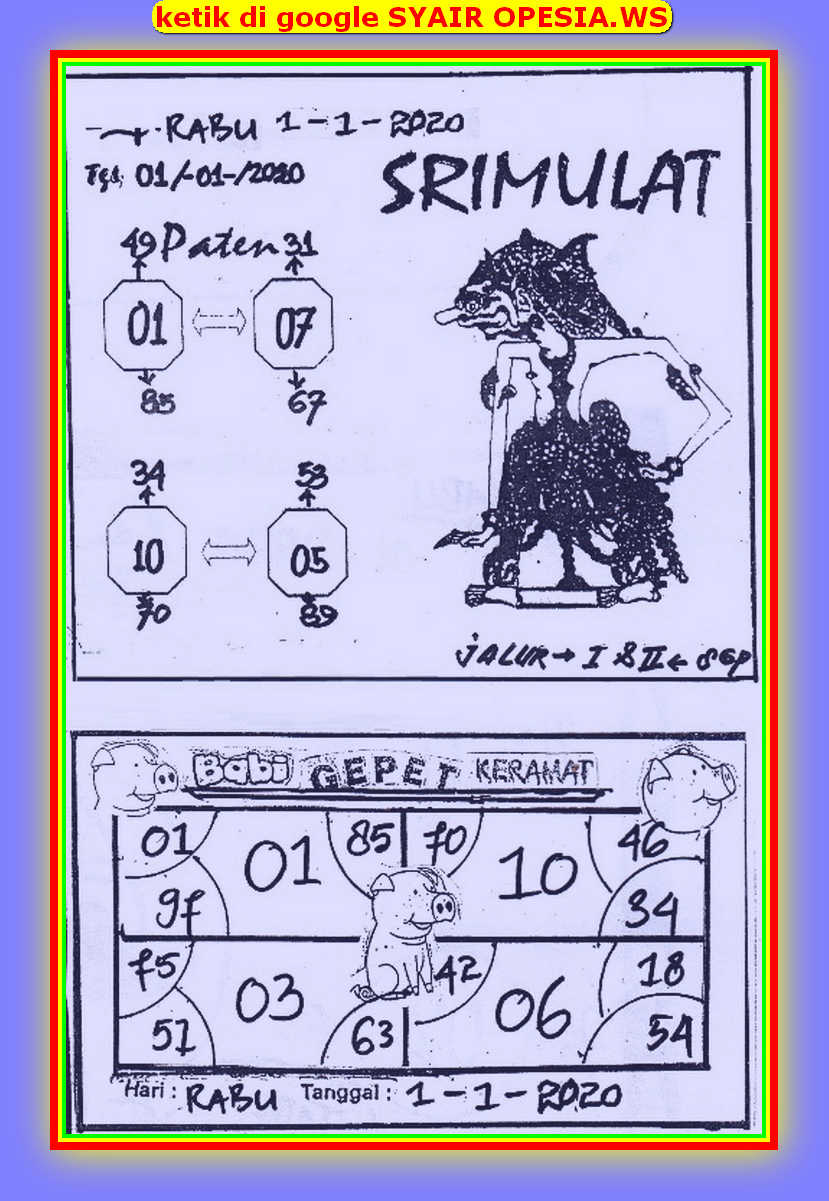 ketik di google SYAIR OPESIA.WS
RABU 1-1-2020
Tgl, 01/-01-/2020
SRIMULAT
49 Paten 31
01 07
85 67
34 53
10 05
70 89
JALUR → I & II ← SGP
Babi GEPET KERAMAT
01 01 85 70 10 46
97 34
75 03 42 06 18
51 63 54
Hari : RABU Tanggal : 1-1-2020